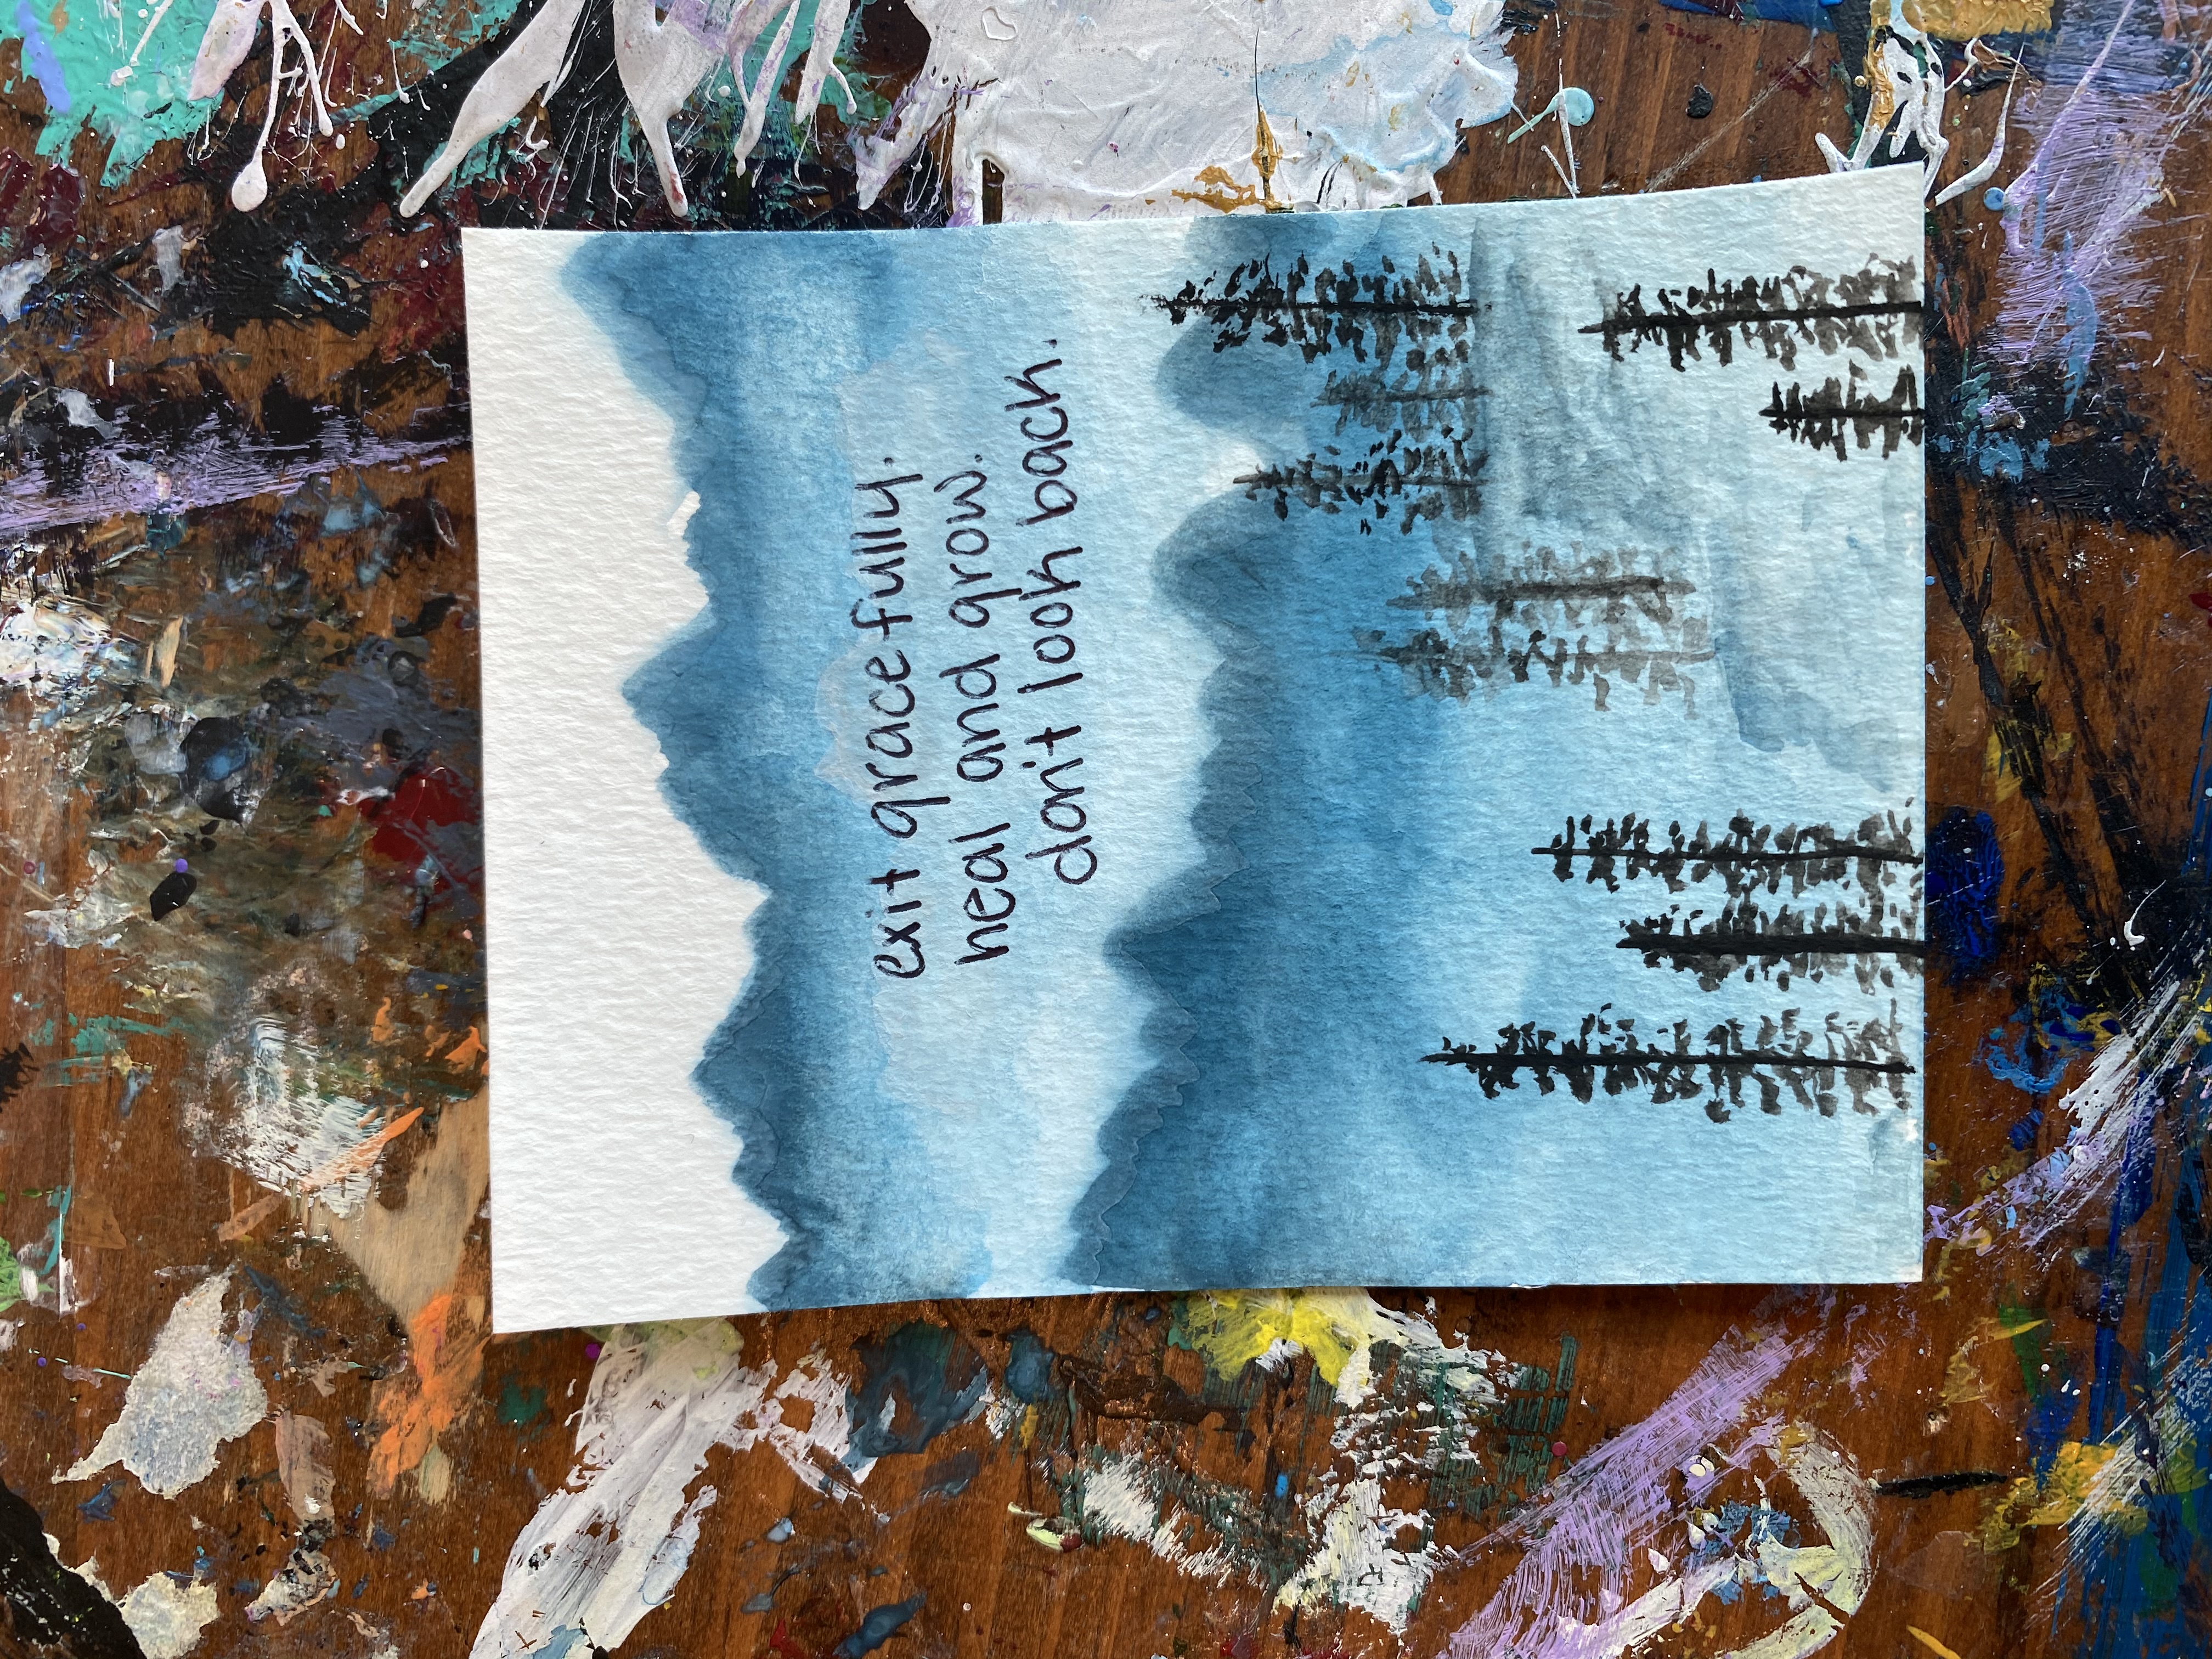 exit gracefully.
heal and grow.
don't look back.